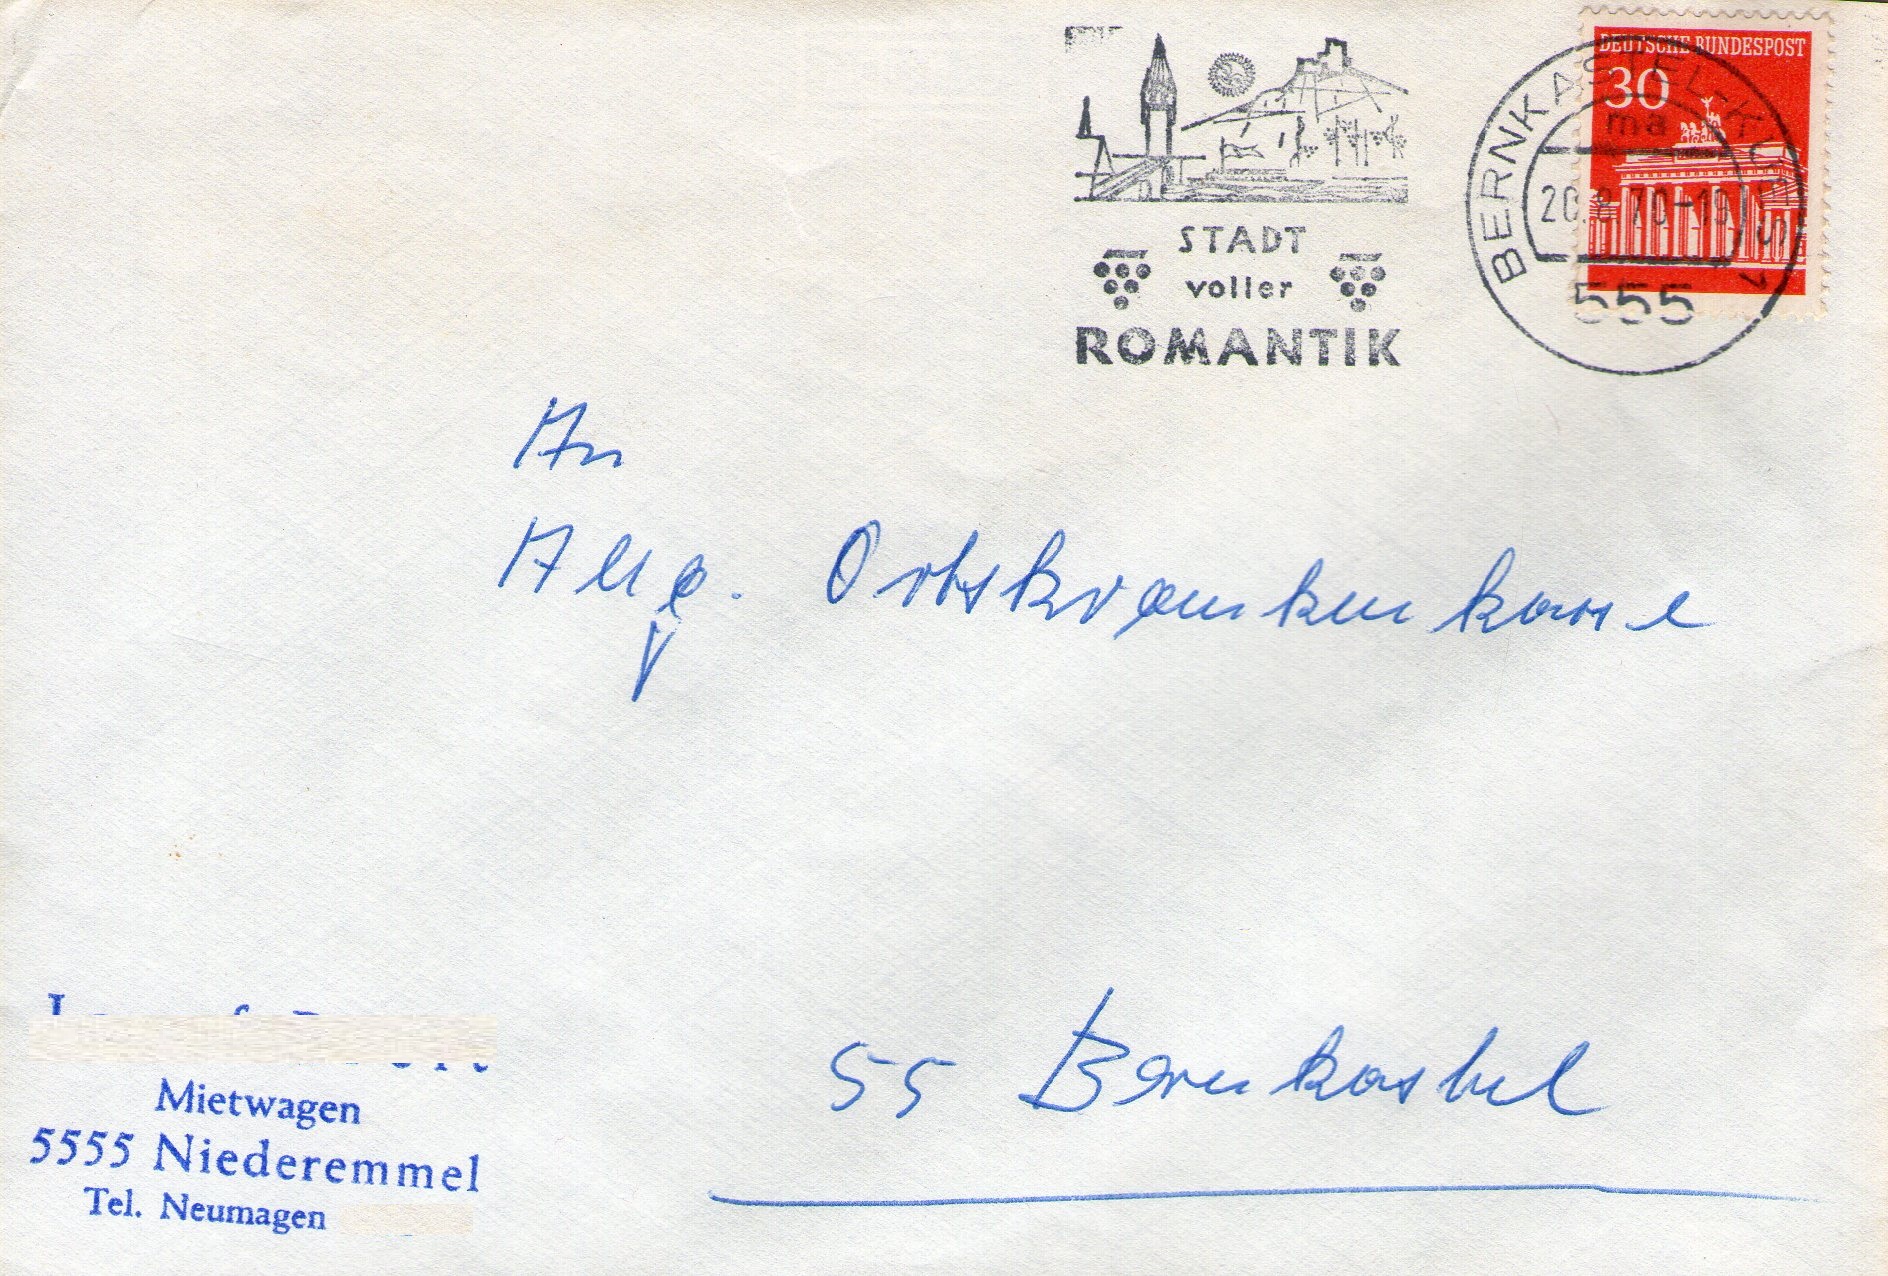 DEUTSCHE BUNDESPOST
30
BERNKASTEL-KUES 1
ma
20.8.70-19
555
STADT
voller
ROMANTIK
An
Allg. Ortskrankenkasse
55 Bernkastel
Mietwagen
5555 Niederemmel
Tel. Neumagen